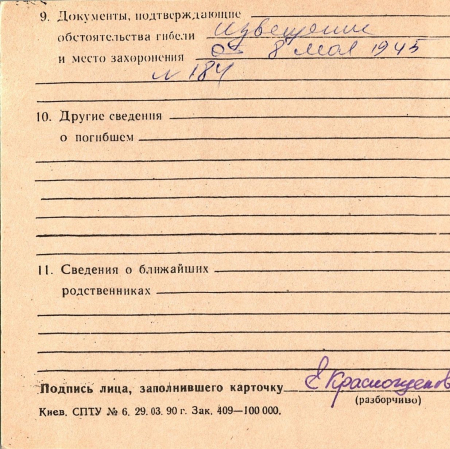 9. Документы, подтверждающие
обстоятельства гибели извещение
и место захоронения 8 мая 1945
№ 184
10. Другие сведения
о погибшем
11. Сведения о ближайших
родственниках
Подпись лица, заполнившего карточку
(разборчиво)
Киев, СПТУ № 6, 29. 03. 90 г. Зак. 409—100 000.